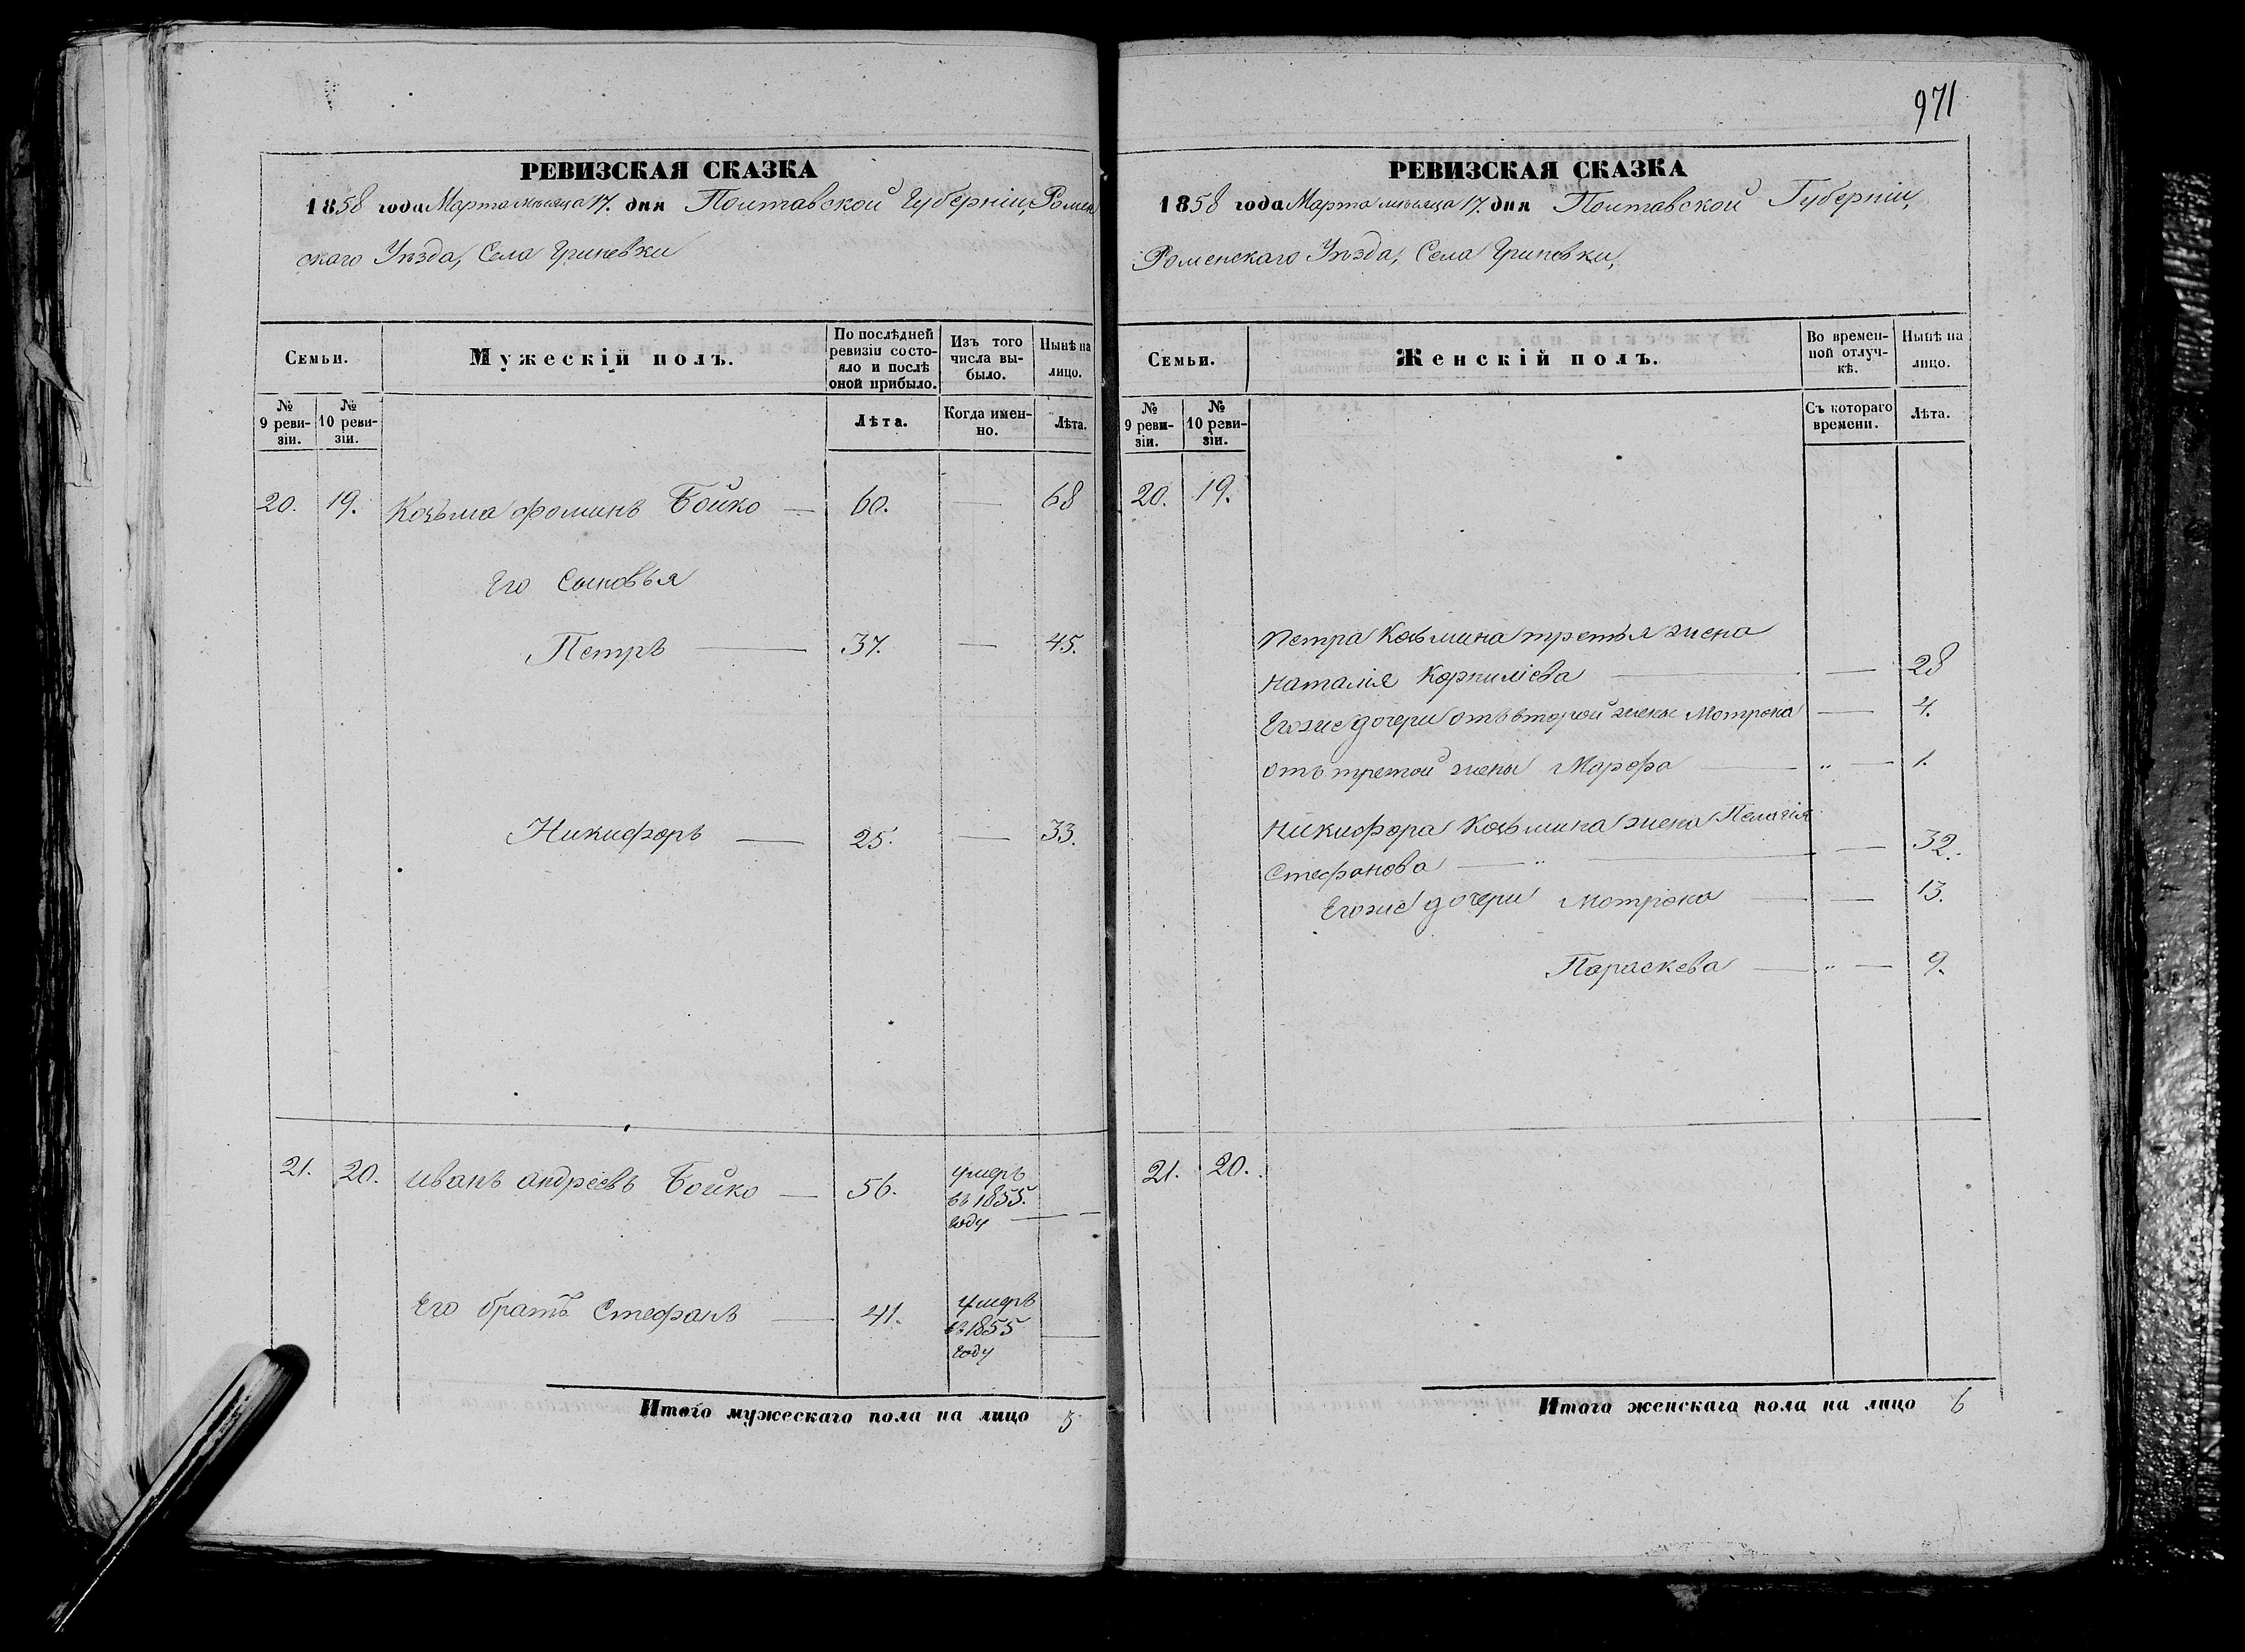 971
РЕВИЗСКАЯ СКАЗКА
1858 года Марта мѣсяца 17. дня Полтавской Губерніи, Ромен
скаго Уѣзда, Села Гриневки
Семьи.
Мужескій полъ.
По послѣдней ревизіи состояло и послѣ оной прибыло.
Изъ того числа выбыло.
Нынѣ на лицо.
№ 9 ревизіи.
№ 10 ревизіи.
Лѣта.
Когда именно.
Лѣта.
20. 19. Козьма Фоминъ Бойко — 60. — 68
Его Сыновья
Петръ — 37. — 45.
Никифоръ — 25. — 33.
21. 20. Иванъ Андреевъ Бойко — 56. умеръ
въ 1855.
году — —
Его братъ Стефанъ — 41. умеръ
въ 1855
году
Итого мужескаго пола на лицо 3
РЕВИЗСКАЯ СКАЗКА
1858 года Марта мѣсяца 17. дня Полтавской Губерніи,
Роменскаго Уѣзда, Села Гриневки,
Семьи.
Женскій полъ.
Во временной отлучкѣ.
Нынѣ на лицо.
№ 9 ревизіи.
№ 10 ревизіи.
Съ котораго времени.
Лѣта.
20. 19.
Петра Козьмина третья жена
Наталія Корниліева — — 28
Его же дочери отъ второй жены Мотрона — 4.
отъ третой жены Марфа — „ — 1.
Никифора Козьмина жена Пелагія
Стефанова — „ — — 32.
Его же дочери Мотрона — — 13.
Параскева — „ — 9.
21. 20.
Итого женскаго пола на лицо 6